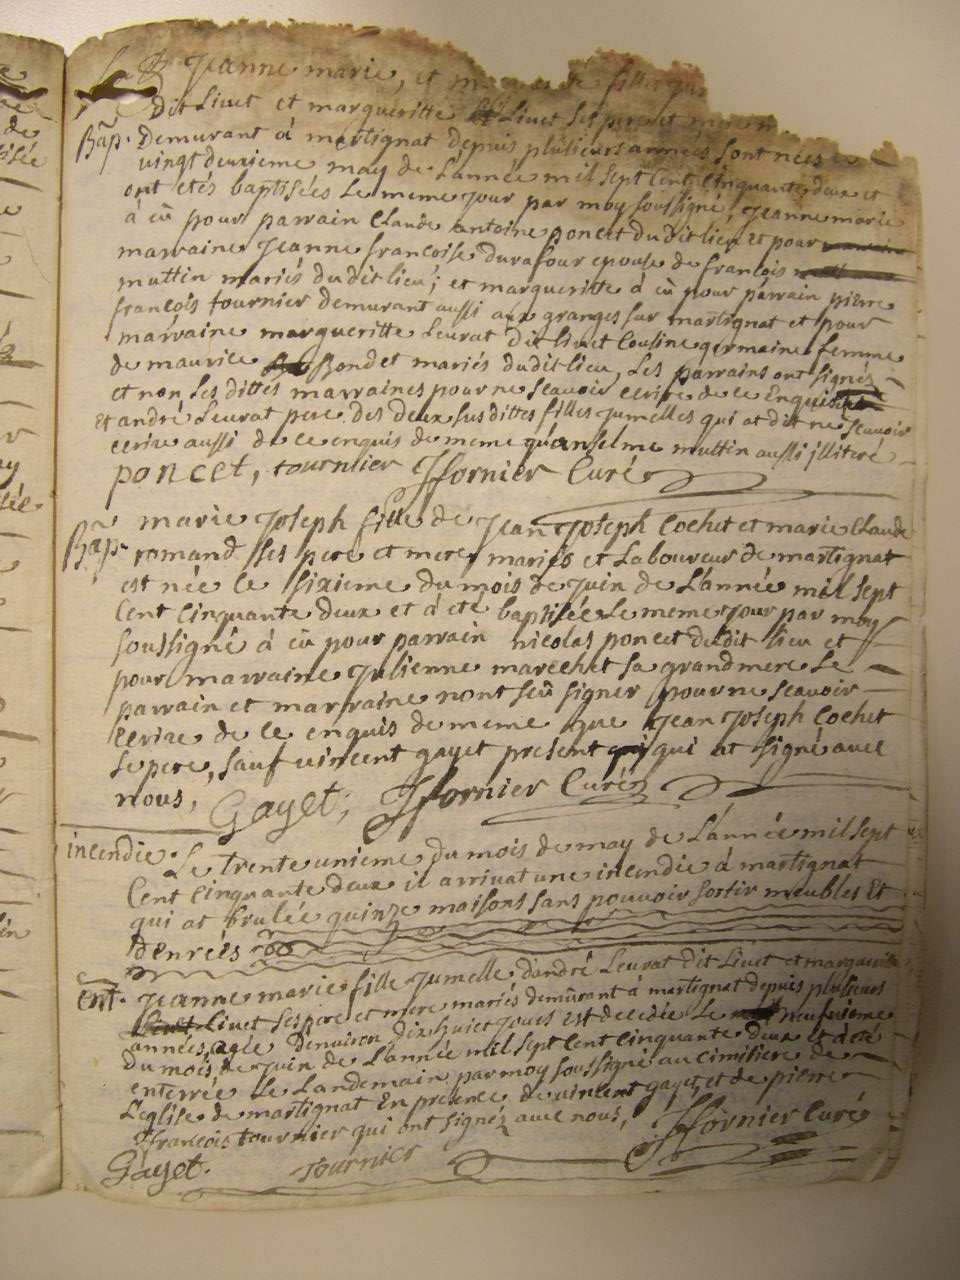 Jeanne marie, et fille
dit Livet et margueritte Livet ses pere et mere
Bap. Demurant à martignat depuis plusieurs années sont nées
vingt deuxieme may de L'année mil sept cent cinquante deux et
ont etés baptisées Le meme jour par moy soussigné, Jeanne marie
à eû pour parrain claude antoine poncet du dit lieu et pour
marraine Jeanne francoise durafour epouse de francois
muttin mariés du dit lieu; et margueritte à eû pour parrain pierre
francois tournier demurant aussi aux granges sur martignat et pour
marraine margueritte Leurat dit Livet cousine germaine femme
de maurice Bondet mariés du dit lieu, Les parrains ont signés
et non Les dittes marraines pour ne scavoir ecrire de ce Enquises
et andré Leurat pere des deux susdittes filles jumelles qui at dit ne scavoir
ecrire aussi de ce enquis de meme qu'anselme muttin aussi jlliteré
poncet, tournier ffornier Curé
Bap. marie Joseph fille de Jean Joseph Cochet et marie Claude
romand ses pere et mere mariés et Laboureur de martignat
est née le sixieme du mois de juin de L'année mil sept
Cent Cinquante deux et à eté baptisée Le meme jour par moy
soussigné à eû pour parrain nicolas poncet du dit lieu et
pour marraine Julienne marechet sa grandmere Le
parrain et marraine nont seû signer pour ne scavoir
ecrire de ce enquis de meme que Jean Joseph Cochet
Le pere, sauf vincent gayet present qui at signé avec
nous, Gayet, ffornier Curé
incendie. Le trente unieme du mois de may de L'année mil sept
Cent Cinquante deux il arrivat une incendie à martignat
qui at brulée quinze maisons sans pouvoir sortir meubles Et
denrées
Ent. Jeanne marie fille jumelle d'andré Leurat dit Livet et margueritte
Livet ses pere et mere mariés demûrant à martignat depuis plusieurs
années, agée d'environ dix huict jours est decedée Le neufvieme
du mois de juin de L'année mil sept cent cinquante deux et à eté
enterrée Le Landemain par moy soussigné au cimitiere de
L'eglise de martignat En presence de vincent gayet et de pierre
ffrancois tournier qui ont signéz avec nous, ffornier Curé
Gayet. Tournier